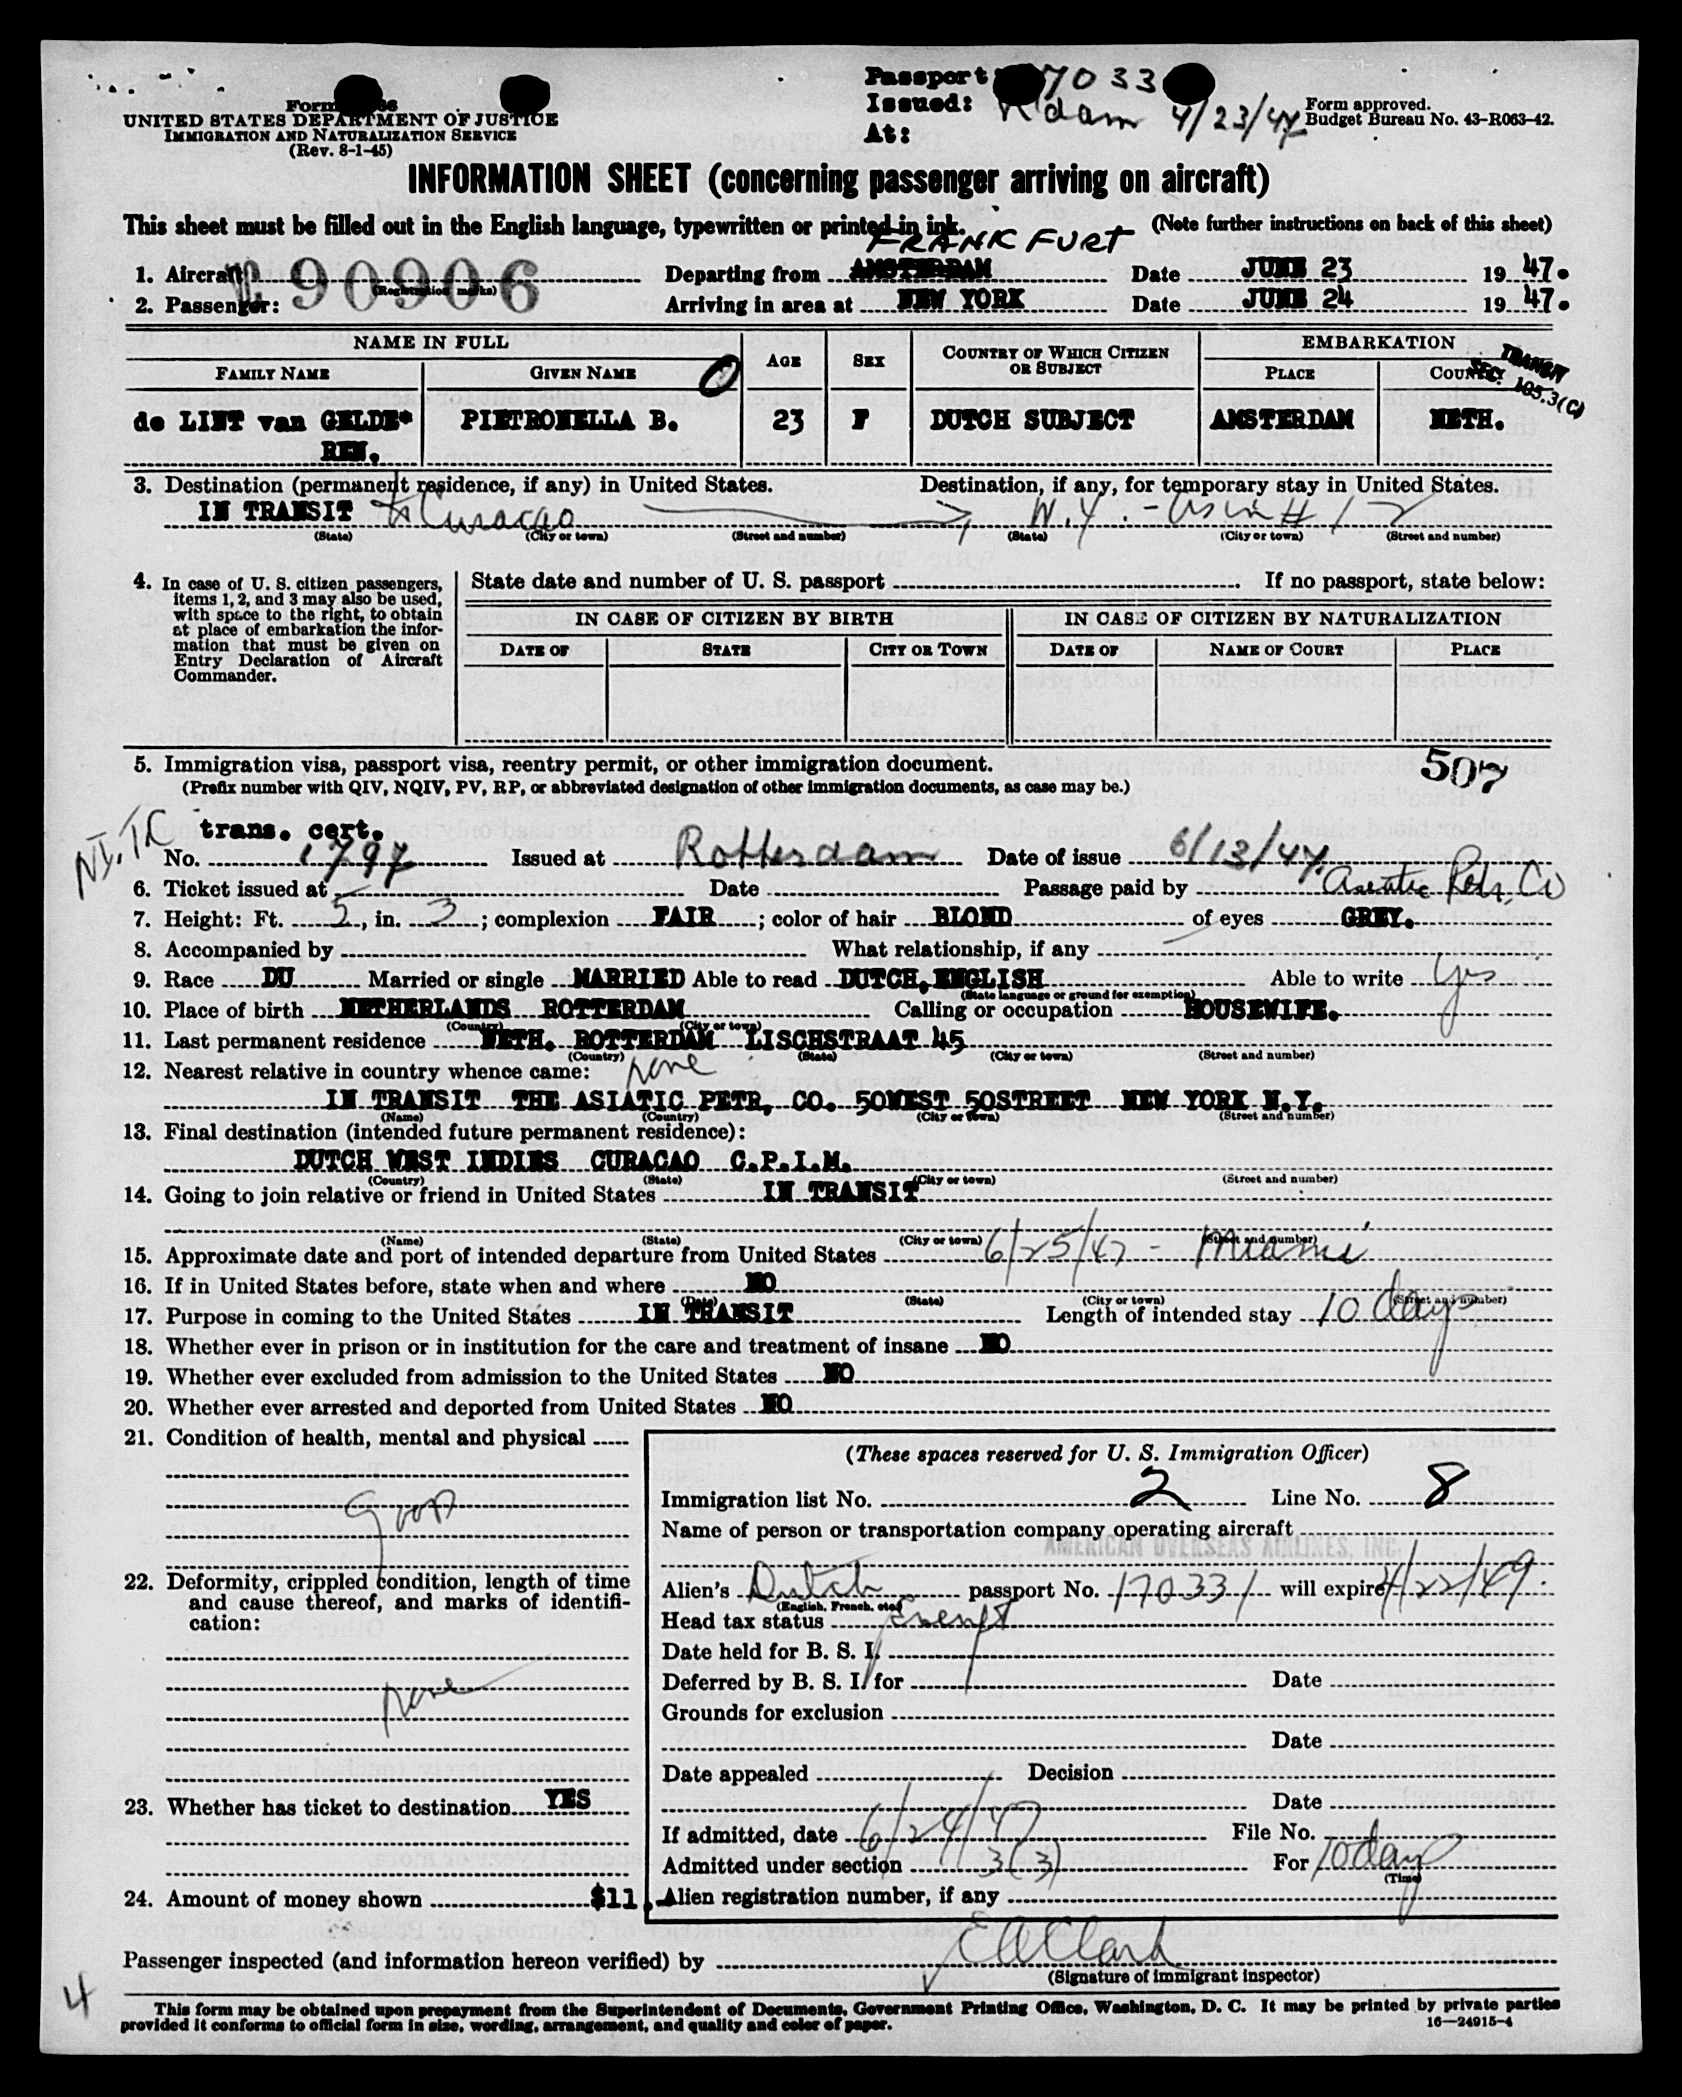 Passport 7033
Issued: R'dam 4/23/47
At:
Form
UNITED STATES DEPARTMENT OF JUSTICE
IMMIGRATION AND NATURALIZATION SERVICE
(Rev. 8-1-45)
Form approved.
Budget Bureau No. 43-R063-42.
INFORMATION SHEET (concerning passenger arriving on aircraft)
This sheet must be filled out in the English language, typewritten or printed in ink. (Note further instructions on back of this sheet)
FRANKFURT
1. Aircraft 90906 (Registration marks) Departing from AMSTERDAM Date JUNE 23 1947.
2. Passenger: Arriving in area at NEW YORK Date JUNE 24 1947.
NAME IN FULL AGE SEX COUNTRY OF WHICH CITIZEN OR SUBJECT EMBARKATION
FAMILY NAME GIVEN NAME PLACE COUNTRY
TRANSIT
SEC. 105.3(C)
de LINT van GELDE* PIETRONELLA B. 23 F DUTCH SUBJECT AMSTERDAM NETH.
REN.
3. Destination (permanent residence, if any) in United States. Destination, if any, for temporary stay in United States.
IN TRANSIT to Curacao N.Y. - as in # 12
(State) (City or town) (Street and number) (State) (City or town) (Street and number)
4. In case of U. S. citizen passengers, items 1, 2, and 3 may also be used, with space to the right, to obtain at place of embarkation the information that must be given on Entry Declaration of Aircraft Commander.
State date and number of U. S. passport . If no passport, state below:
IN CASE OF CITIZEN BY BIRTH IN CASE OF CITIZEN BY NATURALIZATION
DATE OF STATE CITY OR TOWN DATE OF NAME OF COURT PLACE
507
5. Immigration visa, passport visa, reentry permit, or other immigration document.
(Prefix number with QIV, NQIV, PV, RP, or abbreviated designation of other immigration documents, as case may be.)
trans. cert.
No. 1797 Issued at Rotterdam Date of issue 6/13/47.
6. Ticket issued at Date Passage paid by Asiatic Petr. Co
7. Height: Ft. 5, in. 3; complexion FAIR; color of hair BLOND of eyes GREY.
8. Accompanied by What relationship, if any
9. Race DU Married or single MARRIED Able to read DUTCH, ENGLISH Able to write Yes
(State language or ground for exemption)
10. Place of birth NETHERLANDS ROTTERDAM Calling or occupation HOUSEWIFE.
(Country) (City or town)
11. Last permanent residence NETH. ROTTERDAM LISCHSTRAAT 45
(Country) (State) (City or town) (Street and number)
12. Nearest relative in country whence came: none
IN TRANSIT THE ASIATIC PETR, CO. 50WEST 50STREET NEW YORK N.Y.
(Name) (Country) (City or town) (Street and number)
13. Final destination (intended future permanent residence):
DUTCH WEST INDIES CURACAO C.P.I.M.
(Country) (State) (City or town) (Street and number)
14. Going to join relative or friend in United States IN TRANSIT
(Name) (State) (City or town) (Street and number)
15. Approximate date and port of intended departure from United States 6/25/47 - Miami
16. If in United States before, state when and where NO
(Date) (State) (City or town) (Street and number)
17. Purpose in coming to the United States IN TRANSIT Length of intended stay 10 days
18. Whether ever in prison or in institution for the care and treatment of insane NO
19. Whether ever excluded from admission to the United States NO
20. Whether ever arrested and deported from United States NO
21. Condition of health, mental and physical
good
22. Deformity, crippled condition, length of time
and cause thereof, and marks of identifi-
cation:
none
23. Whether has ticket to destination YES
24. Amount of money shown $11.
(These spaces reserved for U. S. Immigration Officer)
Immigration list No. 2 Line No. 8
Name of person or transportation company operating aircraft
AMERICAN OVERSEAS AIRLINES, INC.
Alien's Dutch passport No. 17033 will expire 4/22/49
(English, French, etc.)
Head tax status Exempt
Date held for B. S. I.
Deferred by B. S. I. for Date
Grounds for exclusion
Date
Date appealed Decision
Date
If admitted, date 6/24/47 File No.
Admitted under section 3(3) For 10 days
(Time)
Alien registration number, if any
Passenger inspected (and information hereon verified) by E A Clark
(Signature of immigrant inspector)
4
This form may be obtained upon prepayment from the Superintendent of Documents, Government Printing Office, Washington, D. C. It may be printed by private parties
provided it conforms to official form in size, wording, arrangement, and quality and color of paper. 16—24915-4